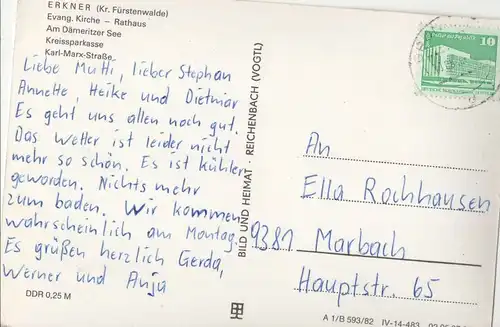 ERKNER (Kr. Fürstenwalde)
Evang. Kirche – Rathaus
Am Dämeritzer See
Kreissparkasse
Karl-Marx-Straße
Liebe Mutti, lieber Stephan
Annette, Heike und Dietmar
Es geht uns allen noch gut.
Das Wetter ist leider nicht
mehr so schön. Es ist kühler
geworden. Nichts mehr
zum baden. Wir kommen
wahrscheinlich am Montag.
Es grüßen herzlich Gerda,
Werner und Anja
DDR 0,25 M
BILD UND HEIMAT · REICHENBACH (VOGTL)
10
An
Ella Rochhausen
9381 Marbach
Hauptstr. 65
A 1/B 593/82 IV-14-483